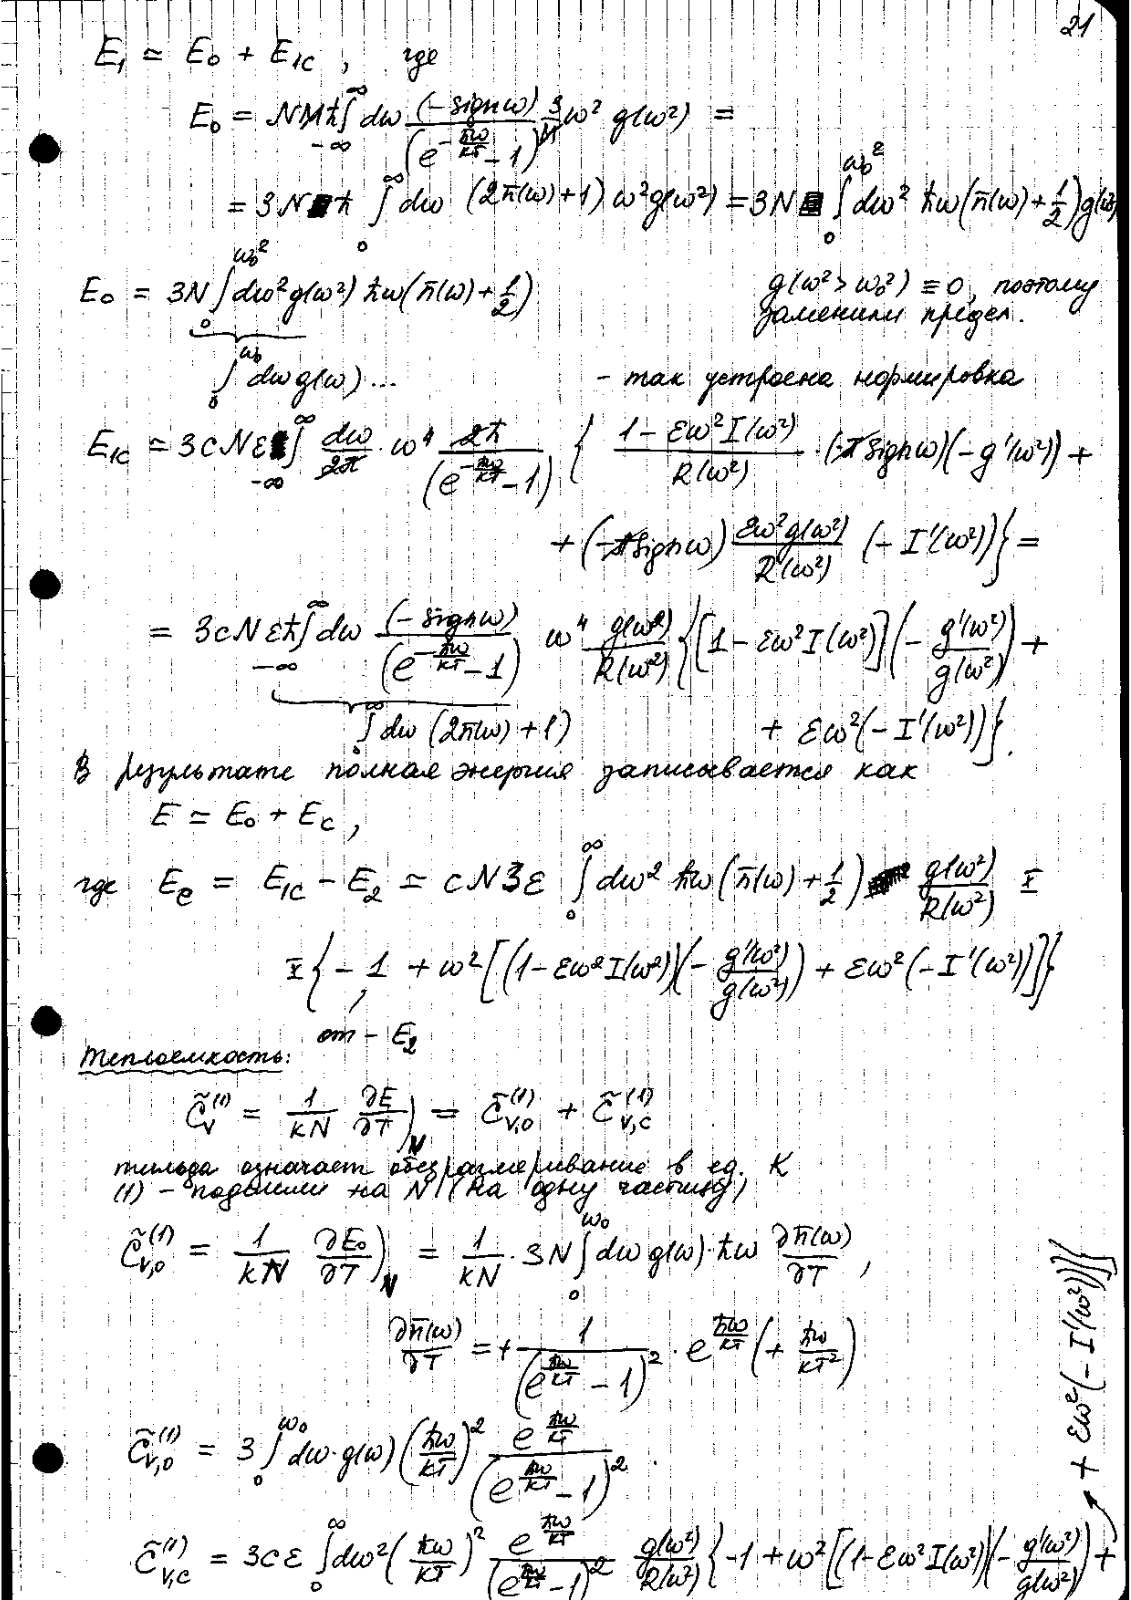 21
E₁ ≃ E₀ + E₁c , где
E₀ = NMħ ∫_{-∞}^{∞} dω (-sign ω)/(e^{-ħω/kT} - 1) 3/M ω² g(ω²) =
= 3N ħ ∫_0^∞ dω (2n̄(ω)+1) ω² g(ω²) = 3N ∫_0^{ω₀²} dω² ħω (n̄(ω) + 1/2) g(ω²)
E₀ = 3N ∫_0^{ω₀²} dω² g(ω²) ħω (n̄(ω) + 1/2) g(ω² > ω₀²) ≡ 0, поэтому
заменили предел.
∫_0^{ω₀} dω g(ω) ... - так устроена нормировка
E₁c ≃ 3cNε ∫_{-∞}^{∞} dω/2π · ω⁴ 2ħ/(e^{-ħω/kT} - 1) { (1 - εω² I(ω²))/R(ω²) · (-π sign ω)(-g'(ω²)) +
+ (-π sign ω) εω² g(ω²)/R(ω²) (-I'(ω²)) } =
= 3cNεħ ∫_{-∞}^{∞} dω (-sign ω)/(e^{-ħω/kT} - 1) ω⁴ g(ω²)/R(ω²) { [1 - εω² I(ω²)] (-g'(ω²)/g(ω²)) +
∫_0^∞ dω (2n̄(ω) + 1) + εω² (-I'(ω²)) }.
В результате полная энергия записывается как
E ≃ E₀ + Ec ,
где Ec = E₁c - E₂ ≃ cN3ε ∫_0^∞ dω² ħω (n̄(ω) + 1/2) g(ω²)/R(ω²) ×
× { -1 + ω² [ (1 - εω² I(ω²)) (-g'(ω²)/g(ω²)) + εω² (-I'(ω²)) ] }
от - E₂
Теплоемкость:
C̃_V^{(1)} = 1/kN ∂E/∂T)_N = C̃_{V,0}^{(1)} + C̃_{V,c}^{(1)}
тильда означает обезразмеривание в ед. K
(1) - поделили на N (на одну частицу)
C̃_{V,0}^{(1)} = 1/kN ∂E₀/∂T)_N = 1/kN · 3N ∫_0^{ω₀} dω g(ω) · ħω ∂n̄(ω)/∂T ,
∂n̄(ω)/∂T = + 1/(e^{ħω/kT} - 1)² · e^{ħω/kT} (+ ħω/kT²)
C̃_{V,0}^{(1)} = 3 ∫_0^{ω₀} dω · g(ω) (ħω/kT)² e^{ħω/kT}/(e^{ħω/kT} - 1)² .
C̃_{V,c}^{(1)} = 3cε ∫_0^∞ dω² (ħω/kT)² e^{ħω/kT}/(e^{ħω/kT} - 1)² g(ω²)/R(ω²) { -1 + ω² [ (1 - εω² I(ω²)) (-g'(ω²)/g(ω²)) +
+ εω² (-I'(ω²)) ] }